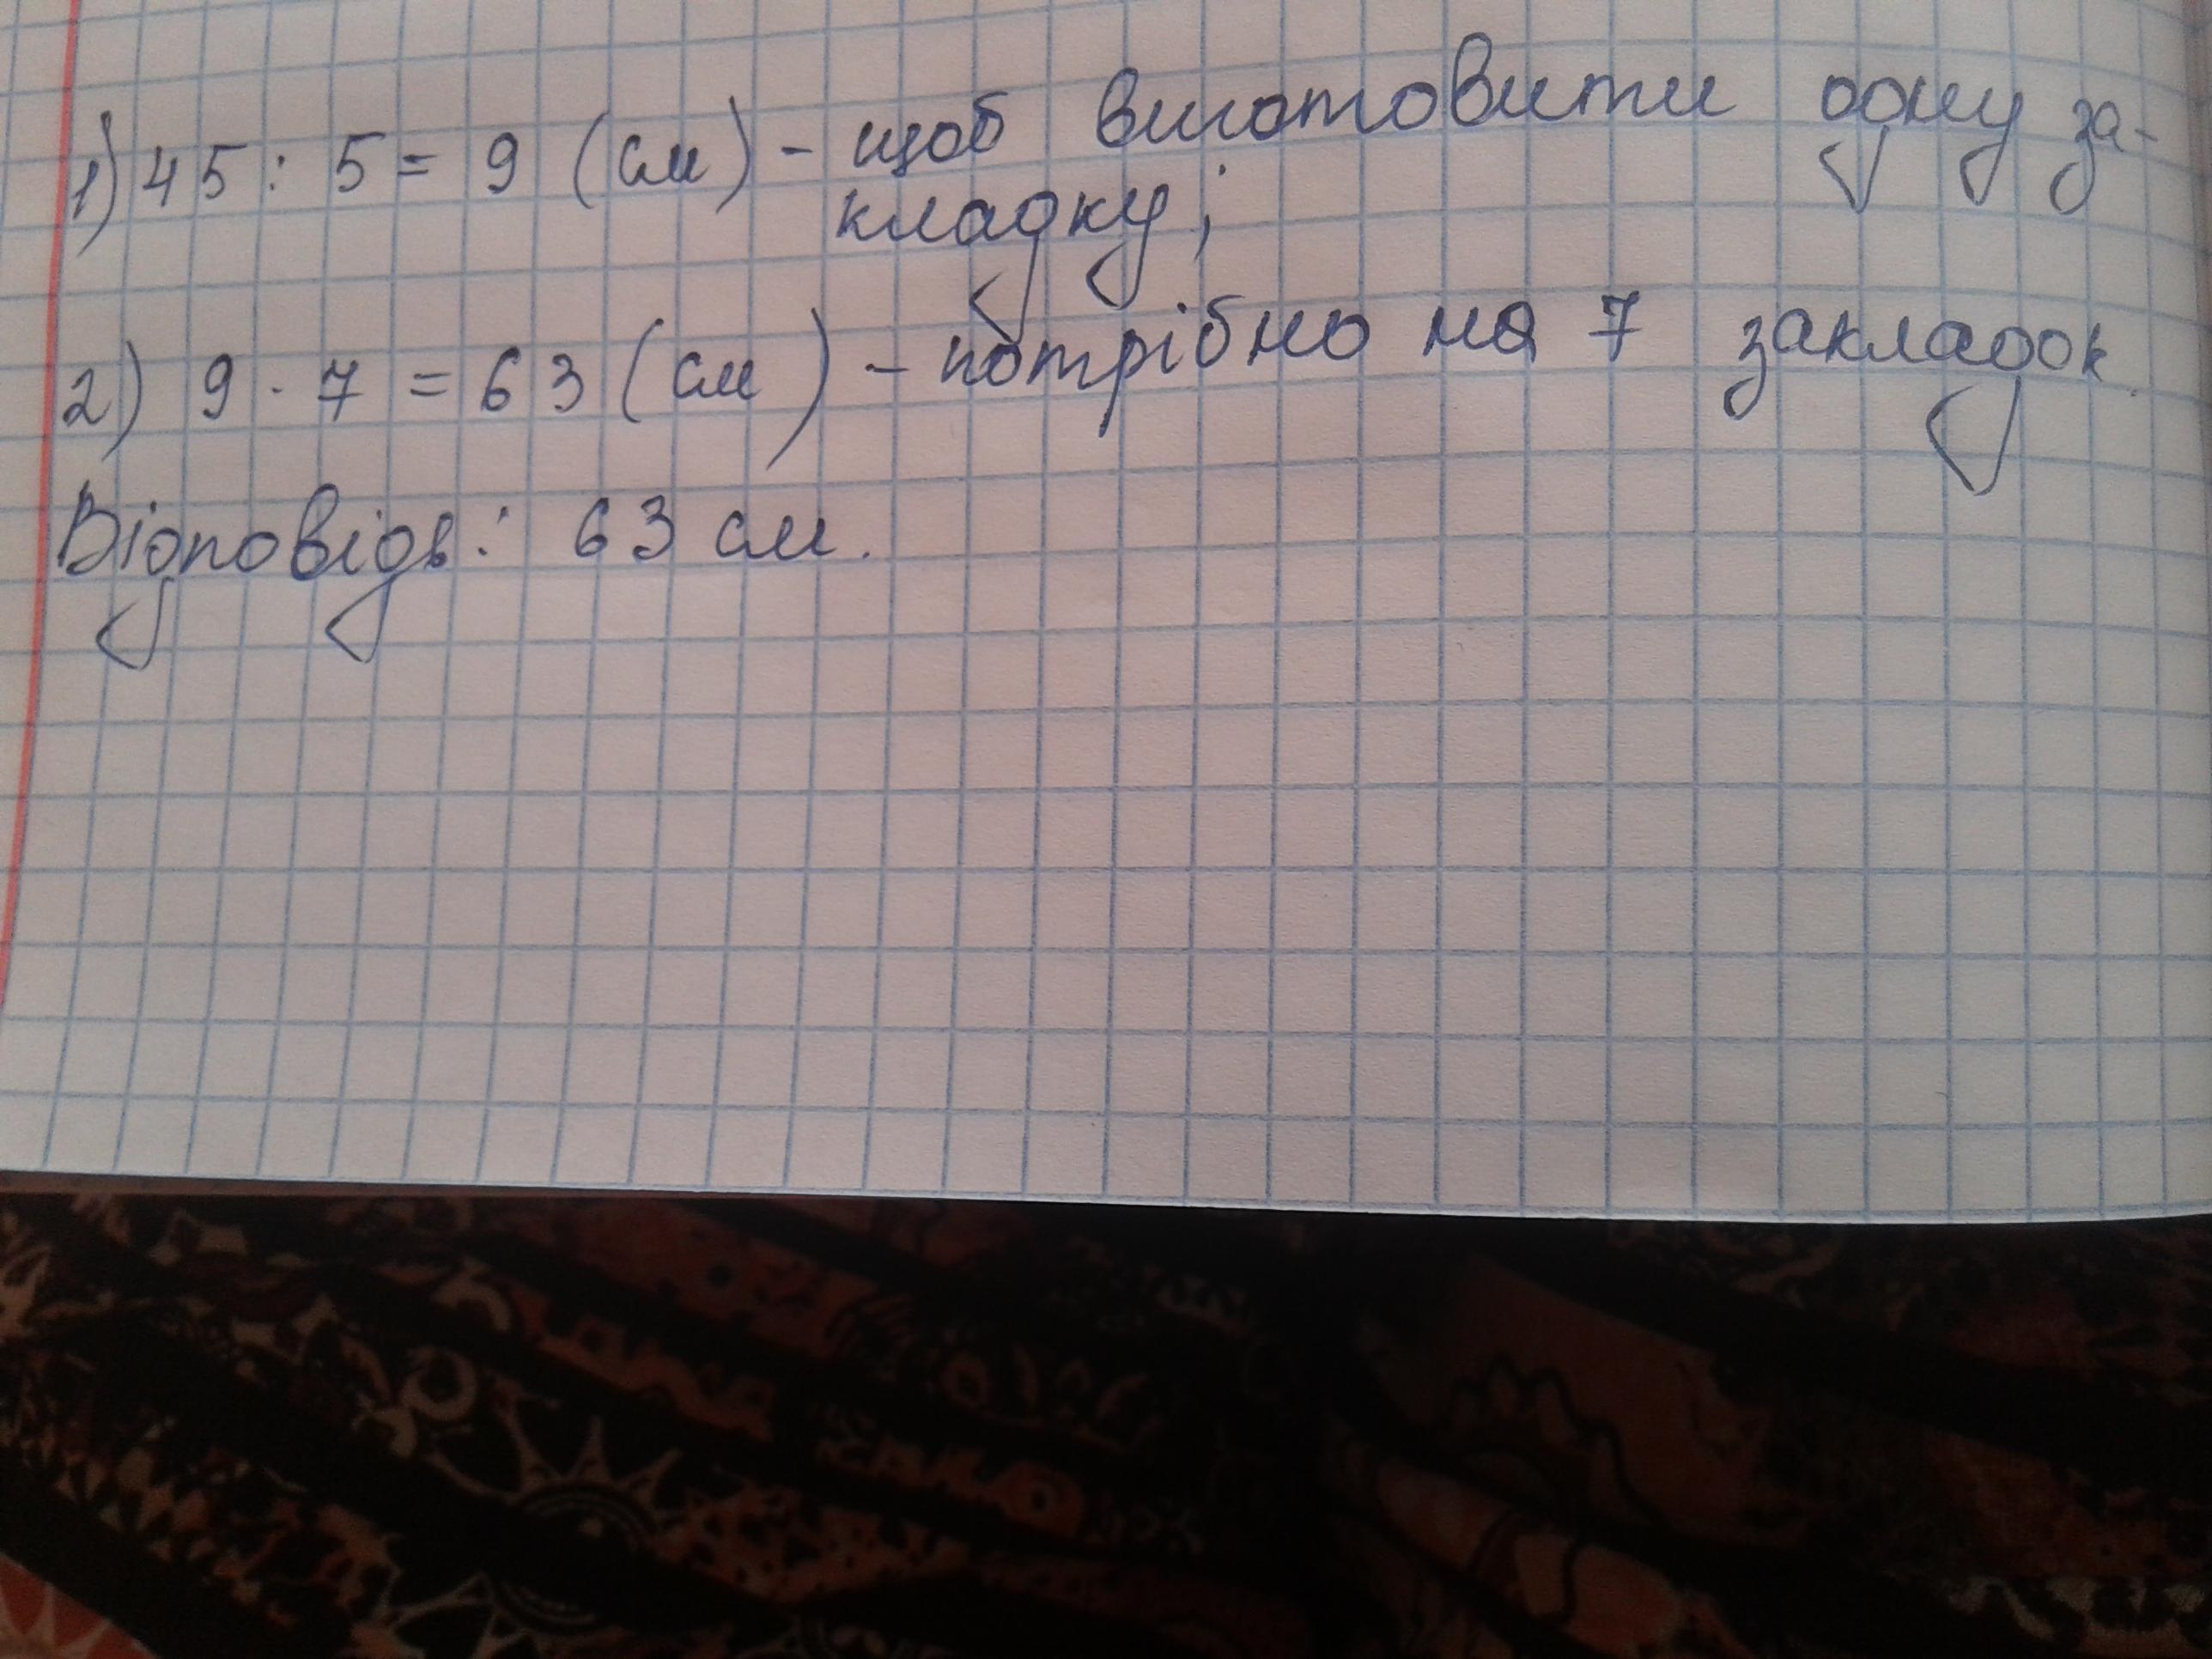 1) 45 : 5 = 9 (см) - щоб виготовити одну за-
кладку;
2) 9 · 7 = 63 (см) - потрібно на 7 закладок.
Відповідь: 63 см.